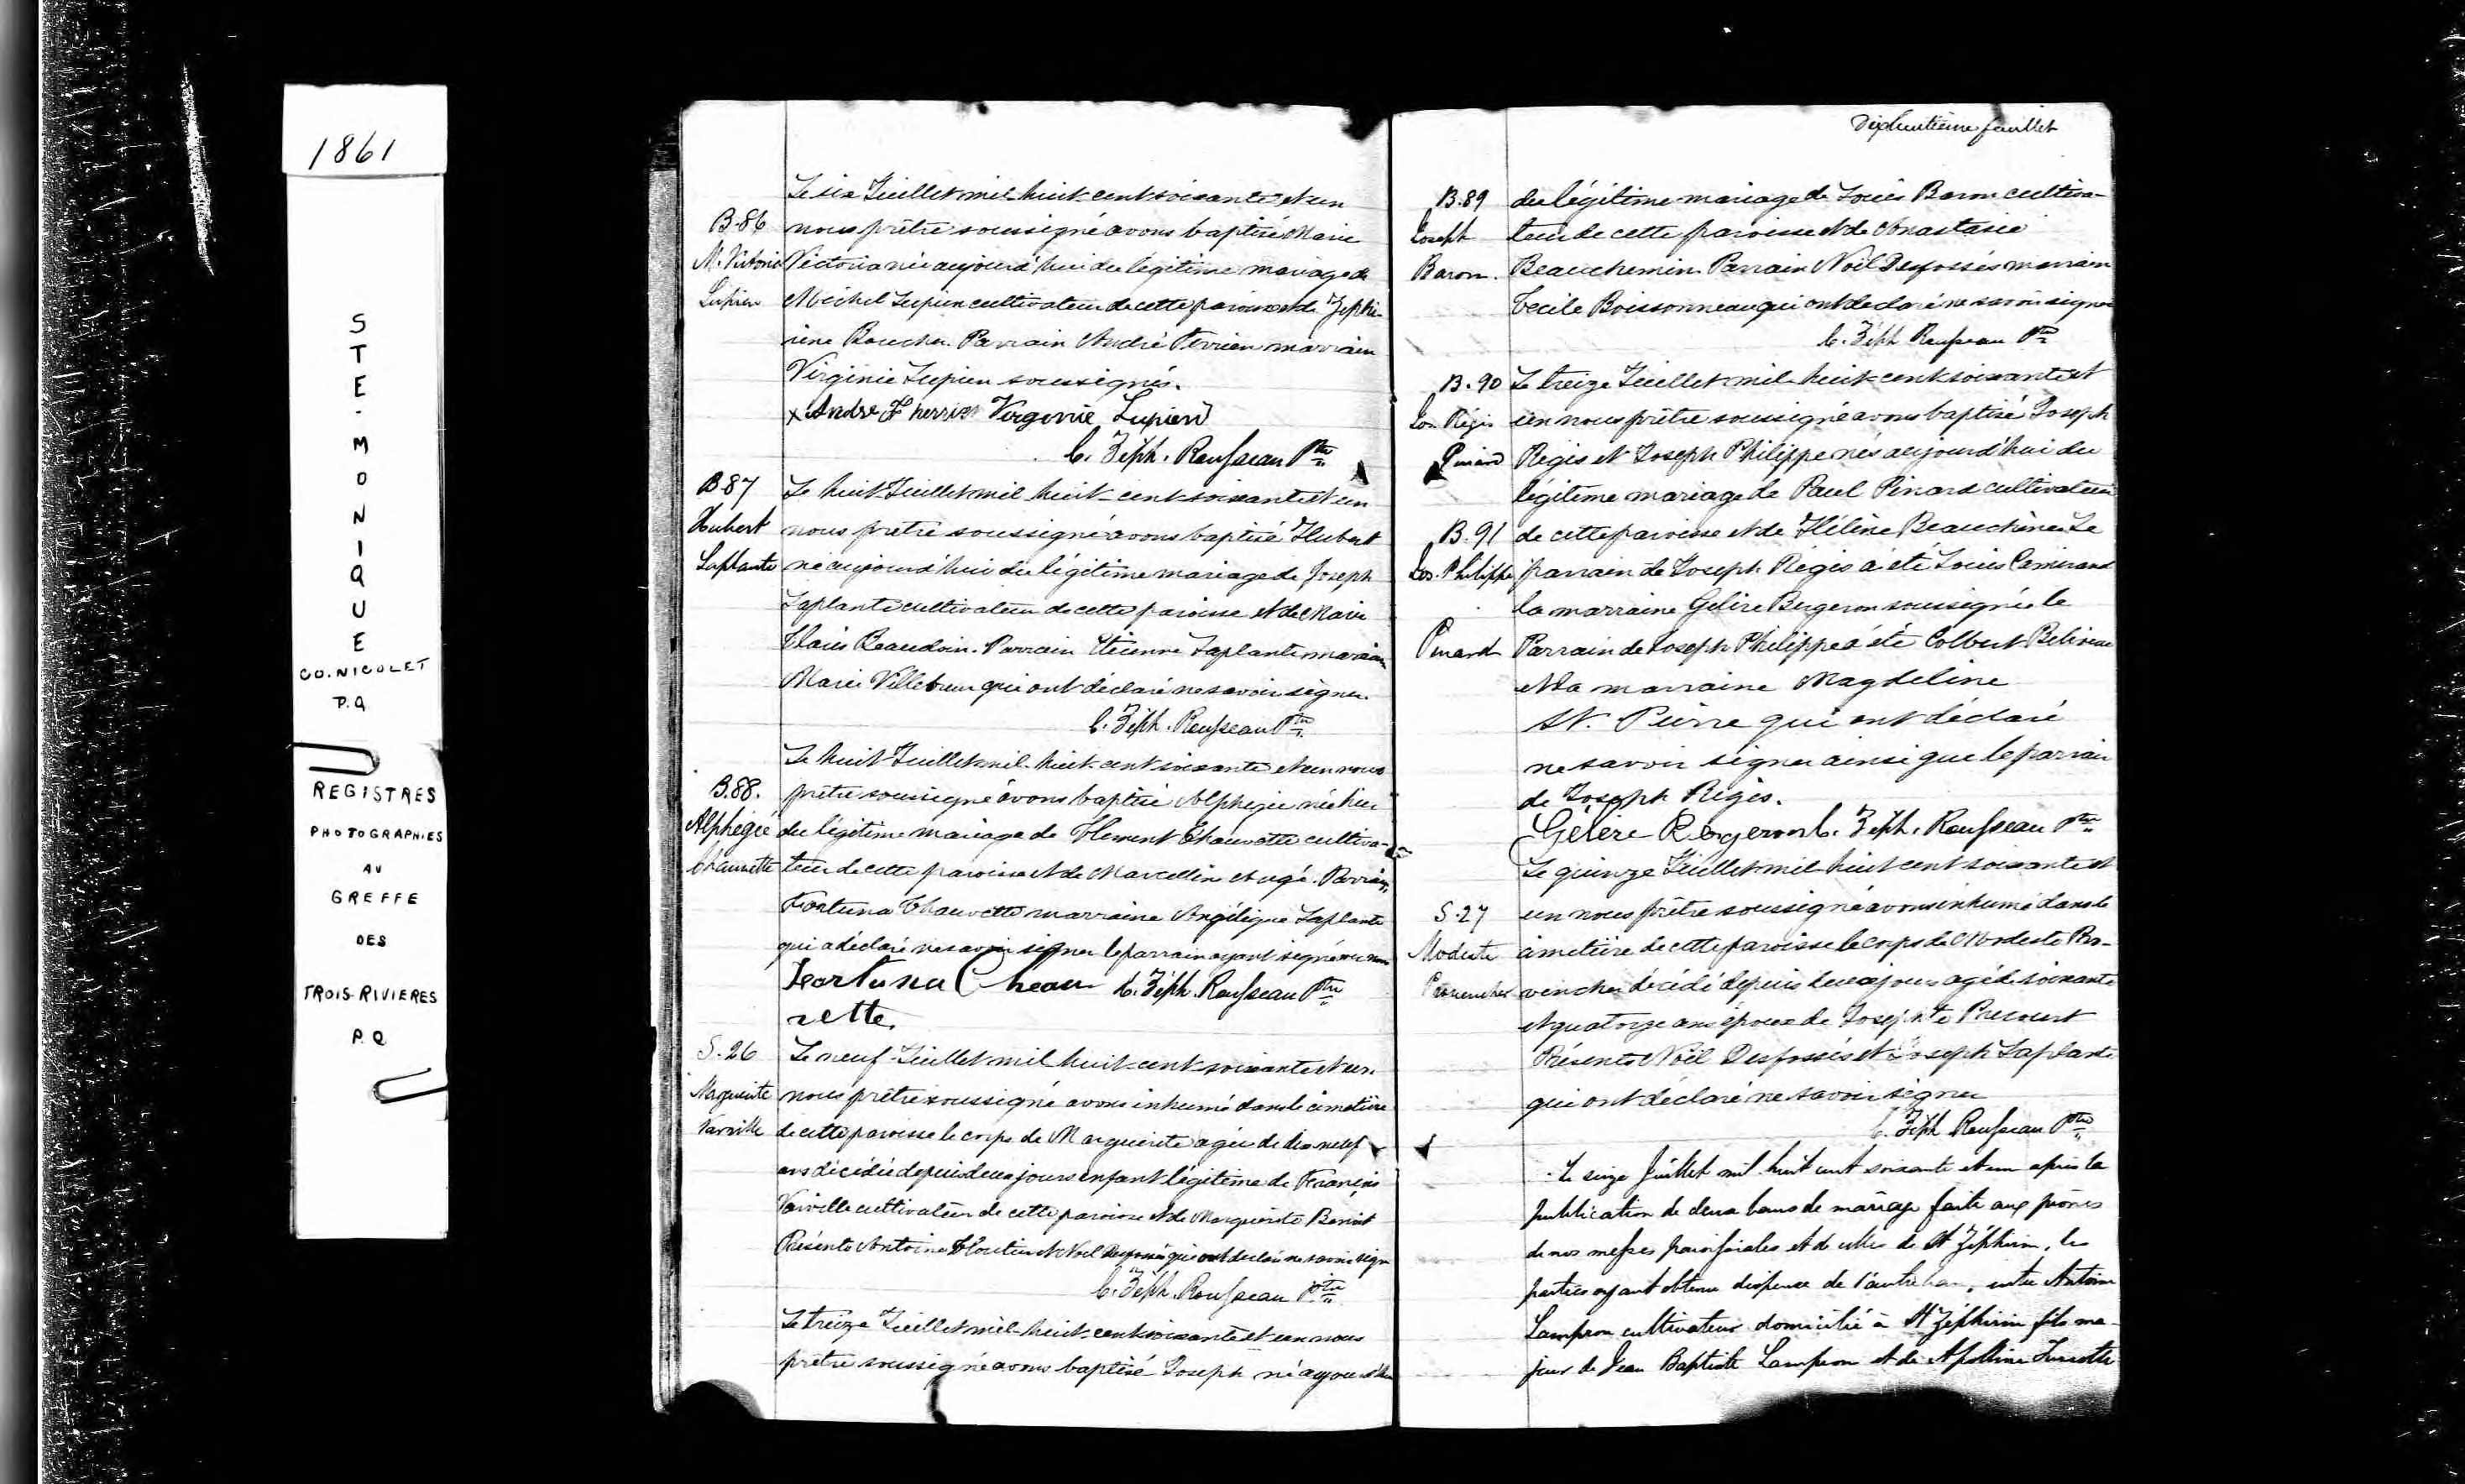 1861
STE. MONIQUE
CO. NICOLET
P.Q
REGISTRES
PHOTOGRAPHIES
AU
GREFFE
DES
TROIS-RIVIERES
P.Q
Le six Juillet mil huit cent soixante et un
B.86 nous prêtre soussigné avons baptisé Marie
M. Victoria Victoria née aujourd'hui du légitime mariage de
Lupien Michel Lupien cultivateur de cette paroisse et de Zéphi-
rine Boucher. Parrain André Terrien marraine
Virginie Lupien soussignés.
x André Therrien Virginie Lupien
C. Zéph. Rousseau Ptre
B.87 Le huit Juillet mil huit cent soixante et un
Hubert nous prêtre soussigné avons baptisé Hubert
Laplante né aujourd'hui du légitime mariage de Joseph
Laplante cultivateur de cette paroisse et de Marie
Beaudoin. Parrain Etienne Laplante marraine
Marie Villebrun qui ont déclaré ne savoir signer.
C. Zéph. Rousseau Ptre
Le huit Juillet mil huit cent soixante et un nous
B.88. prêtre soussigné avons baptisé Alphégie née hier
Alphégie du légitime mariage de Clément Chaurette cultiva-
Chaurette teur de cette paroisse et de Marcelline. Parrain
Fortuna Chaurette marraine Angélique Laplante
qui a déclaré ne savoir signer le parrain ayant signé
Feortuna Cheau C. Zéph. Rousseau Ptre
rette.
S.26 Le neuf Juillet mil huit cent soixante et un
Marguerite nous prêtre soussigné avons inhumé dans le cimetière
Varville de cette paroisse le corps de Marguerite agée de dix neuf
ans décédée depuis deux jours enfant légitime de François
Varville cultivateur de cette paroisse et de Marguerite Benoit
Présents Antoine Cloutier et Noël Desfossés qui ont déclaré ne savoir sign
C. Zéph. Rousseau Ptre
Le treize Juillet mil huit cent soixante et un nous
prêtre soussigné avons baptisé Joseph né aujourd'hui
Dixhuitième feuillet
B.89 du légitime mariage de Louis Baron cultiva-
Joseph teur de cette paroisse et de Anastasie
Baron. Beauchemin. Parrain Noël Desfossés marraine
Cecile Boissonneau qui ont déclaré ne savoir signer
C. Zéph Rousseau Ptre
B.90 Le treize Juillet mil huit cent soixante et
Jos. Régis un nous prêtre soussigné avons baptisé Joseph
Pinard Régis et Joseph Philippe nés aujourd'hui du
légitime mariage de Paul Pinard cultivateur
B.91 de cette paroisse et de Hélène Beauchêne. Le
Jos. Philippe parrain de Joseph Régis a été Louis Camirand
la marraine Gélire Bergeron soussignée le
Pinard Parrain de Joseph Philippe a été Colbert Beliveau
et la marraine Magdeline
St. Pierre qui ont déclaré
ne savoir signer ainsi que le parrain
de Joseph Régis.
Gélire Bergeron C. Zéph. Rousseau Ptre
Le quinze Juillet mil huit cent soixante et
S.27 un nous prêtre soussigné avons inhumé dans le
Modeste cimetière de cette paroisse le corps de Modeste Pro-
Provencher vencher décédé depuis deux jours agé de soixante
et quatorze ans époux de Josephte Precourt
Présents Noël Desfossés et Joseph Laplante
qui ont déclaré ne savoir signer
C. Zéph Rousseau Ptre
Le seize Juillet mil huit cent soixante et un après la
publication de deux bans de mariage faite aux prônes
de nos messes paroissiales et de celles de St Zéphirin, les
parties ayant obtenu dispense de l'autre ban, entre Antoine
Lampron cultivateur domicilié à St Zéphirin fils ma-
jeur de Jean Baptiste Lampron et de Apolline Turcotte